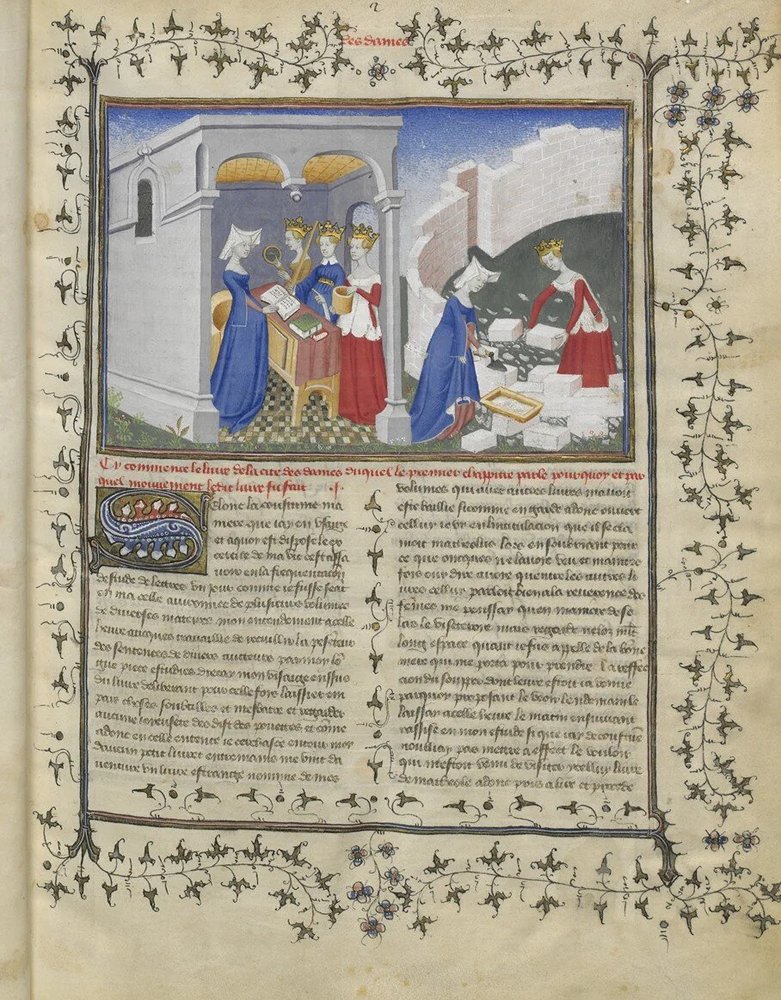 2
des dames
Cy commence le livre de la cité des dames duquel le premier chappitre parle pourquoy et par
quel mouvement ledit livre fu fait .j.
Selonc la coustume ma
niere que iay en usaige
et a quoy est dispose le ex
cercite de ma vie cest assa
voir en la frequentacion
destude de lettres un iour comme ie fusse seat
en ma celle avironnee de plusieurs volumes
de diverses matieres mon entendement a celle
heure auques travaillie de recuillir la pesateur
des sentences de divers aucteurs par mon lonc
piece estudies drecay mon visaige ensus
du livre deliberant pour celle fois laissier en
pais choses soubtilles et mesbatre et regarder
aucune ioyeusete des dist des pouettes et comme
adonc en celle entente ie cerchasse entour moy
daucun petit livret entre mains me vint da
venture un livre estrange non de mes
volumes qui avec autres livres mavoit
este baillie si comme en garde adonc ouvert
cellui ie vy en lintitulacion que il se cla
moit matheolus lors en soubriant pour
ce que oncques ne lavoie veu et maintes
fois ouy dire avoie quentre les autres li
vres cellui parloit bien a la reverence des
femmes me penssay quen maniere de so
las le visiteroye mais regarde ne loz moult
long espace quant ie fus appellee de la bonne
mere qui me porta pour prendre la reffec
cion du soupper dont leure estoit ia venue
parquoy proposant le veoir lendemain le
laissay a celle heure le matin ensuivant
rassise en mon estude si que iay de coustume
noubliay pas mettre a effect le vouloir
qui mestoit venu de visiter cellui livre
de matheole adonc pris a lire et procede